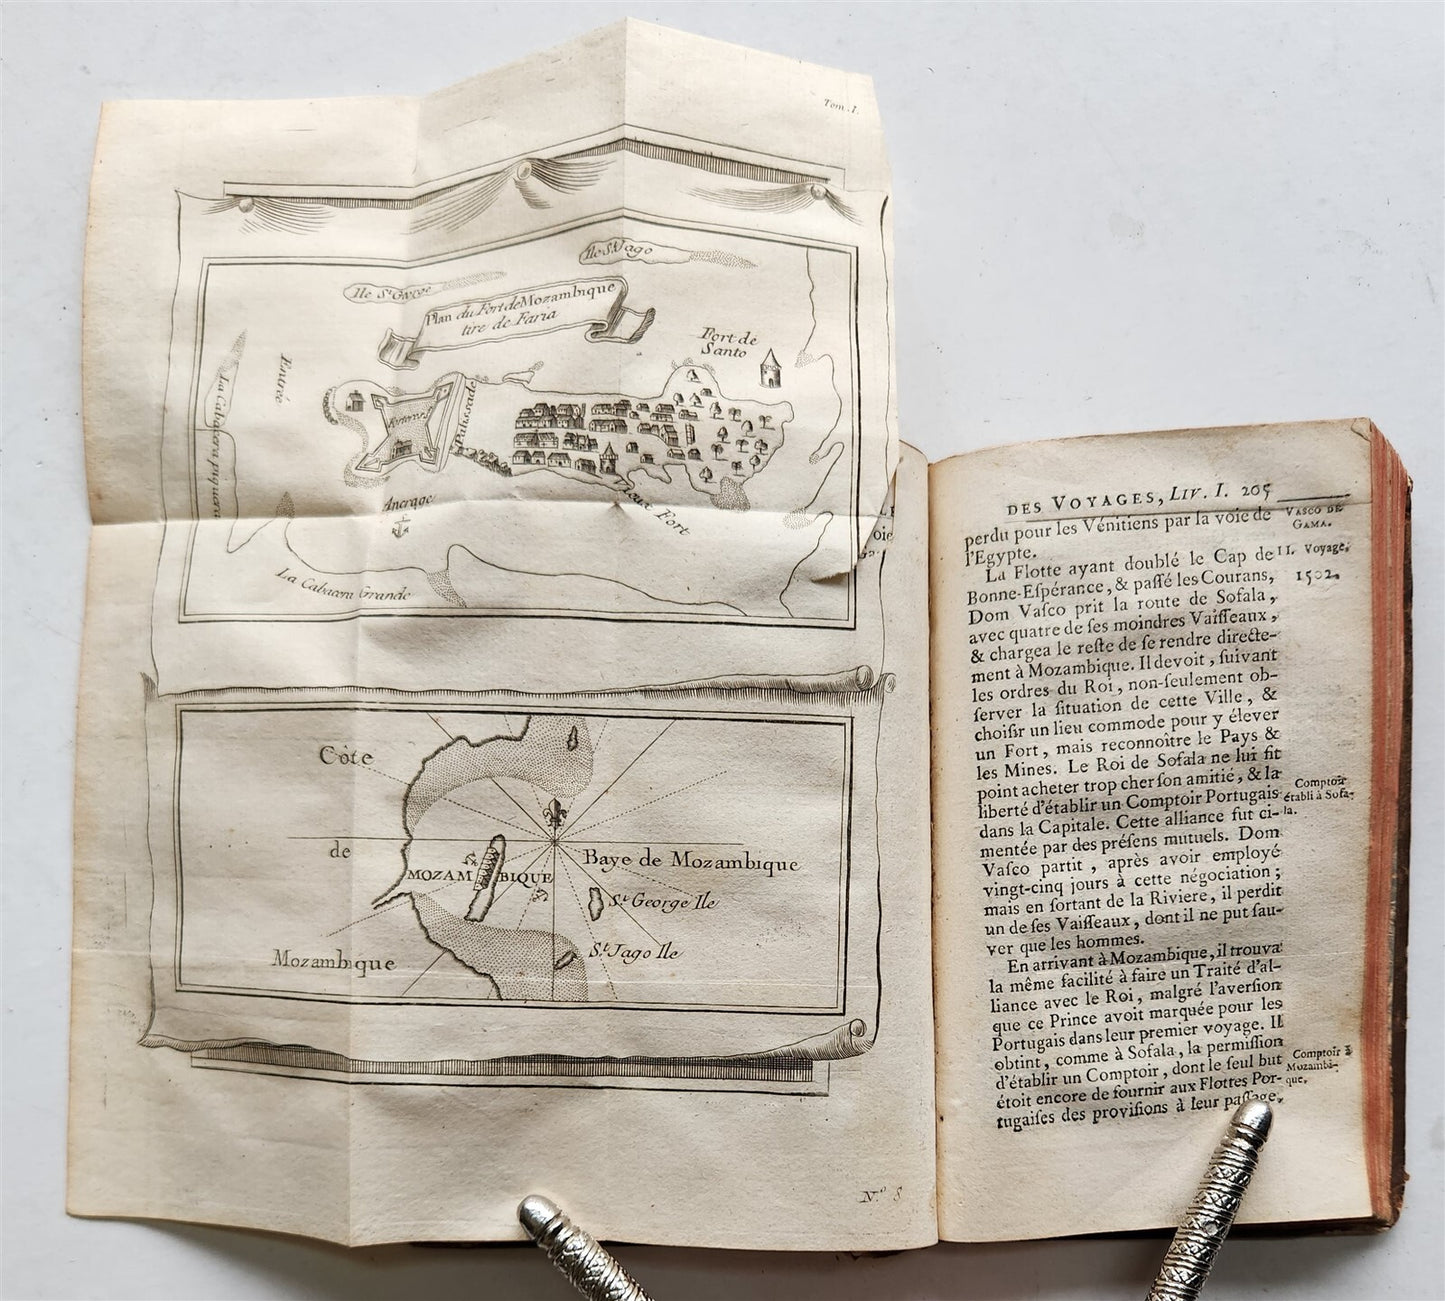 Tom. I.
Ile St. Jago
Ile St. George
Plan du Fort de Mozambique
tire de Faria
Fort de
Santo
Entrée
La Cabacera piquera
Palissade
Vieux Fort
Ancrage
La Cabacera Grande
Côte
de
MOZAMBIQUE
Baye de Mozambique
St. George Ile
St. Jago Ile
Mozambique
N.º 8
DES VOYAGES, LIV. I. 205
perdu pour les Vénitiens par la voie de
l'Egypte.
VASCO DE
GAMA.
II. Voyage.
1502.
La Flotte ayant doublé le Cap de
Bonne-Eſpérance, & paſſé les Courans,
Dom Vaſco prit la route de Sofala,
avec quatre de ſes moindres Vaiſſeaux,
& chargea le reſte de ſe rendre directe-
ment à Mozambique. Il devoit, ſuivant
les ordres du Roi, non-ſeulement ob-
ſerver la ſituation de cette Ville, &
choiſir un lieu commode pour y élever
un Fort, mais reconnoître le Pays &
les Mines. Le Roi de Sofala ne lui fit
point acheter trop cher ſon amitié, & la
liberté d'établir un Comptoir Portugais
dans la Capitale. Cette alliance fut ci-
mentée par des préſens mutuels. Dom
Vaſco partit, après avoir employé
vingt-cinq jours à cette négociation;
mais en ſortant de la Riviere, il perdit
un de ſes Vaiſſeaux, dont il ne put ſau-
ver que les hommes.
Comptoir
établi à Sofa-
la.
En arrivant à Mozambique, il trouva
la même facilité à faire un Traité d'al-
liance avec le Roi, malgré l'averſion
que ce Prince avoit marquée pour les
Portugais dans leur premier voyage. Il
obtint, comme à Sofala, la permiſſion
d'établir un Comptoir, dont le ſeul but
étoit encore de fournir aux Flottes Por-
tugaiſes des proviſions à leur paſſage.
Comptoir à
Mozambi-
que.